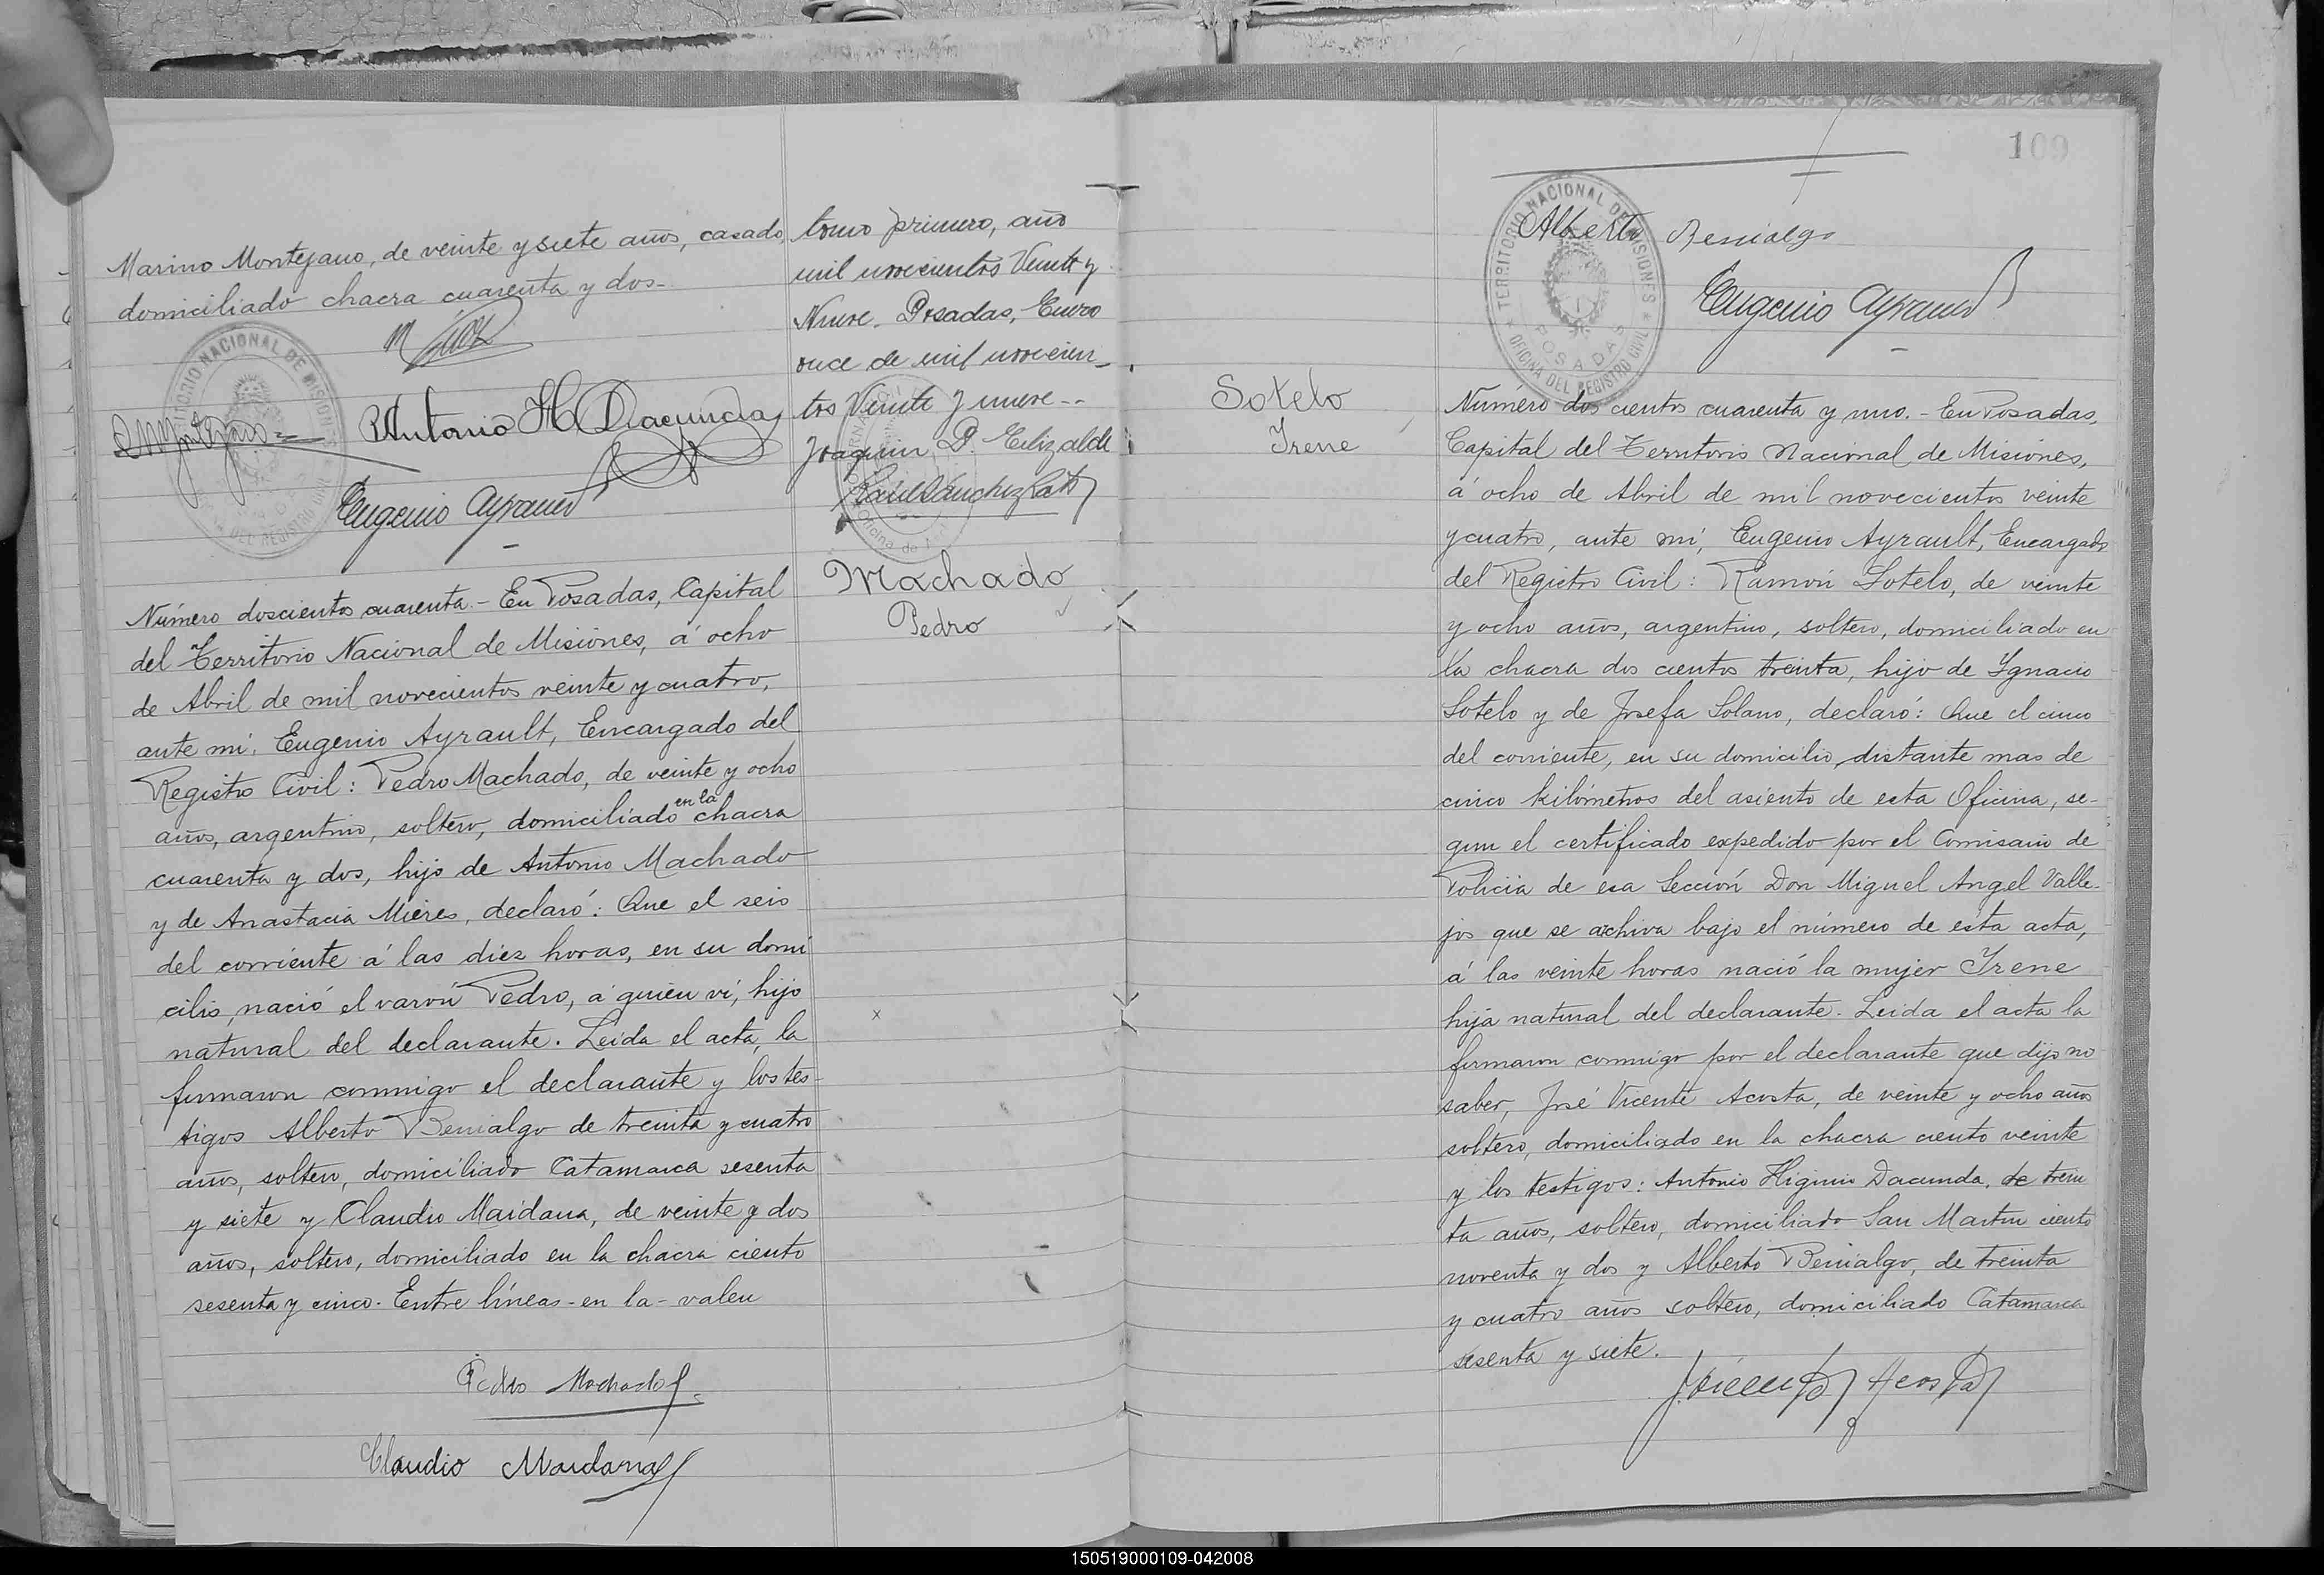 Marino Montejano, de veinte y siete años, casado,
domiciliado chacra cuarenta y dos-
TERRITORIO NACIONAL DE MISIONES
OFICINA DEL REGISTRO CIVIL
Antonio H. Dacunda
Eugenio Ayrault
Número doscientos cuarenta.- En Posadas, Capital
del Territorio Nacional de Misiones, á ocho
de Abril de mil novecientos veinte y cuatro,
ante mi, Eugenio Ayrault, Encargado del
Registro Civil: Pedro Machado, de veinte y ocho
años, argentino, soltero, domiciliado en la chacra
cuarenta y dos, hijo de Antonio Machado
y de Anastacia Mieres, declaró: Que el seis
del corriente á las diez horas, en su domi
cilio, nació el varón Pedro, á quien ví, hijo
natural del declarante. Leida el acta, la
firmaron conmigo el declarante y los tes-
tigos Alberto Benialgo de treinta y cuatro
años, soltero, domiciliado Catamarca sesenta
y siete y Claudio Maidana, de veinte y dos
años, soltero, domiciliado en la chacra ciento
sesenta y cinco. Entre líneas - en la - valen
Pedro Machado
Claudio Maidana
tomo primero, año
mil novecientos Veinte y
Nueve. Posadas, Enero
once de mil novecien-
tos Veinte y nueve--
Joaquin P. Elizalde
Raúl Sanchez
Machado
Pedro
x
109
TERRITORIO NACIONAL DE MISIONES
POSADAS
OFICINA DEL REGISTRO CIVIL
Alberto Benialgo
Eugenio Ayrault
Sotelo
Irene
Número dos cientos cuarenta y uno.- En Posadas,
Capital del Territorio Nacional de Misiones,
á ocho de Abril de mil novecientos veinte
y cuatro, ante mi, Eugenio Ayrault, Encargado
del Registro Civil: Ramón Sotelo, de veinte
y ocho años, argentino, soltero, domiciliado en
la chacra dos cientos treinta, hijo de Ygnacio
Sotelo y de Josefa Solano, declaró: Que el cinco
del corriente, en su domicilio, distante mas de
cinco kilómetros del asiento de esta Oficina, se-
gun el certificado expedido por el Comisario de
Policia de esa Sección Don Miguel Angel Valle-
jos que se archiva bajo el número de esta acta,
á las veinte horas nació la mujer Irene
hija natural del declarante. Leida el acta la
firmaron conmigo por el declarante que dijo no
saber, José Vicente Acosta, de veinte y ocho años
soltero, domiciliado en la chacra ciento veinte
y los testigos: Antonio Higinio Dacunda, de trein
ta años, soltero, domiciliado San Martin ciento
noventa y dos y Alberto Benialgo, de treinta
y cuatro años soltero, domiciliado Catamarca
sesenta y siete.
J. Vicente Acosta
150519000109-042008